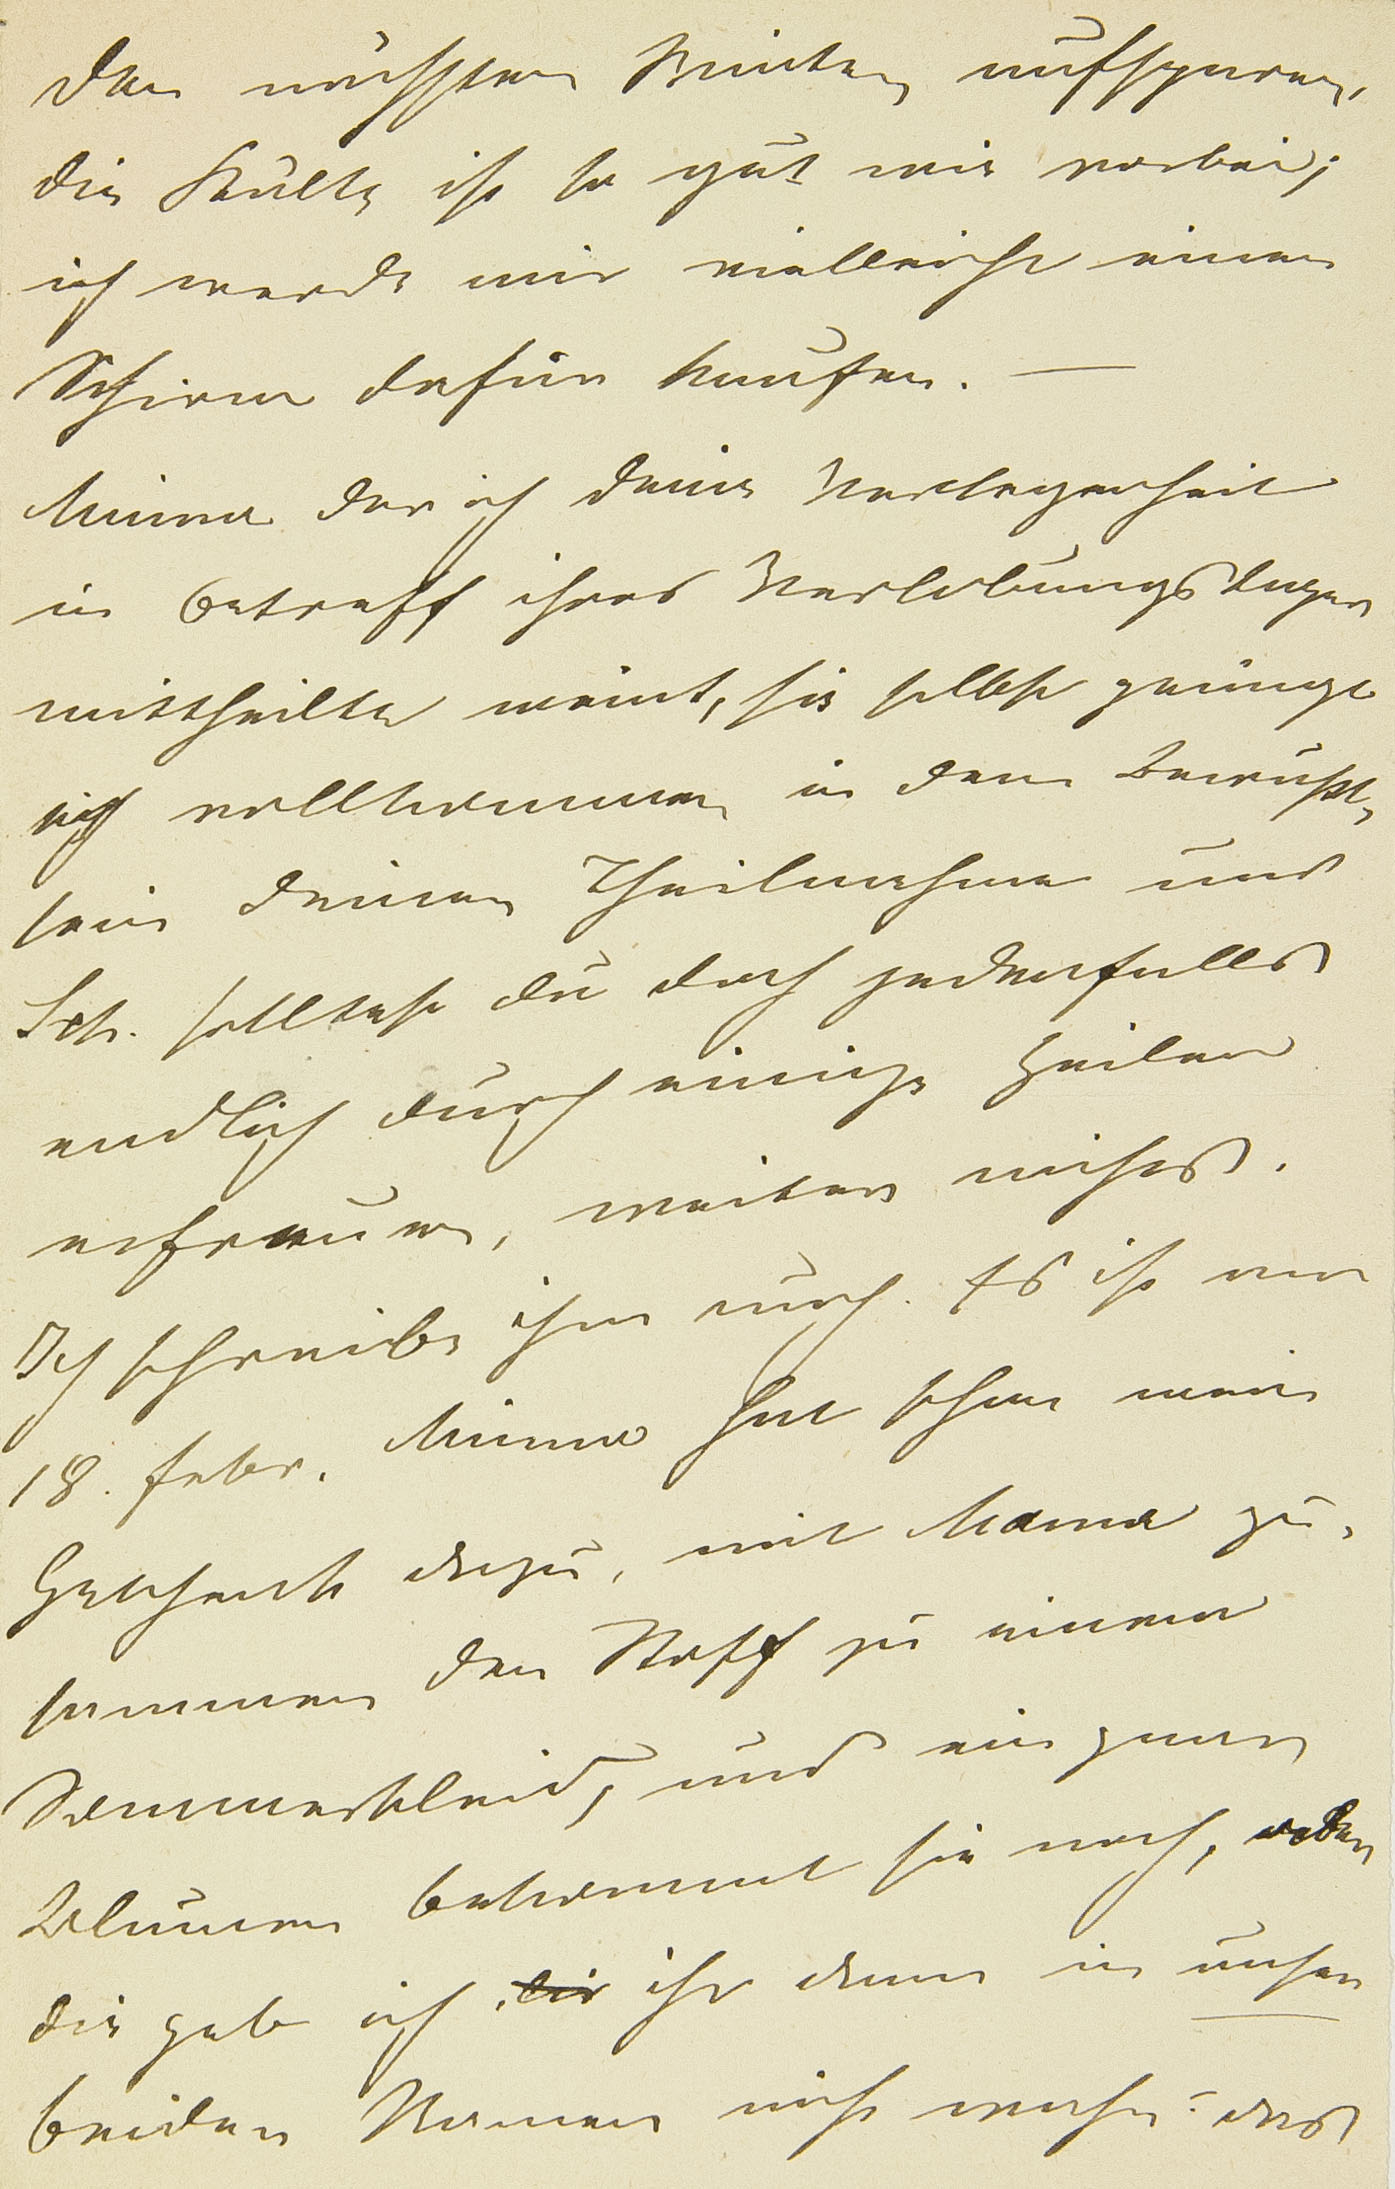 den nächsten Winter aufsparen,
die Kälte ist so gut wie vorbei;
ich werde mir vielleicht einen
Schirm dafür kaufen. —
Minna der ich deine Verlegenheit
in betreff ihres Verlobungstages
mittheilte meint, sie selbst genüge
sich vollkommen in dem Bewußt-
sein deiner Theilnahme und
Sch. solltest du doch jedenfalls
endlich durch einige Zeilen
erfreuen, weiter nichts.
Ich schreibe ihm auch. Es ist am
18. Febr. Minna hat schon mein
Geschenk dazu, mit Mama zu-
sammen den Stoff zu einem
Sommerkleid, und ein paar
Blumen bekommt sie noch, eben
die gebe ich die ihr dann in unser
beider Namen nicht wahr? das